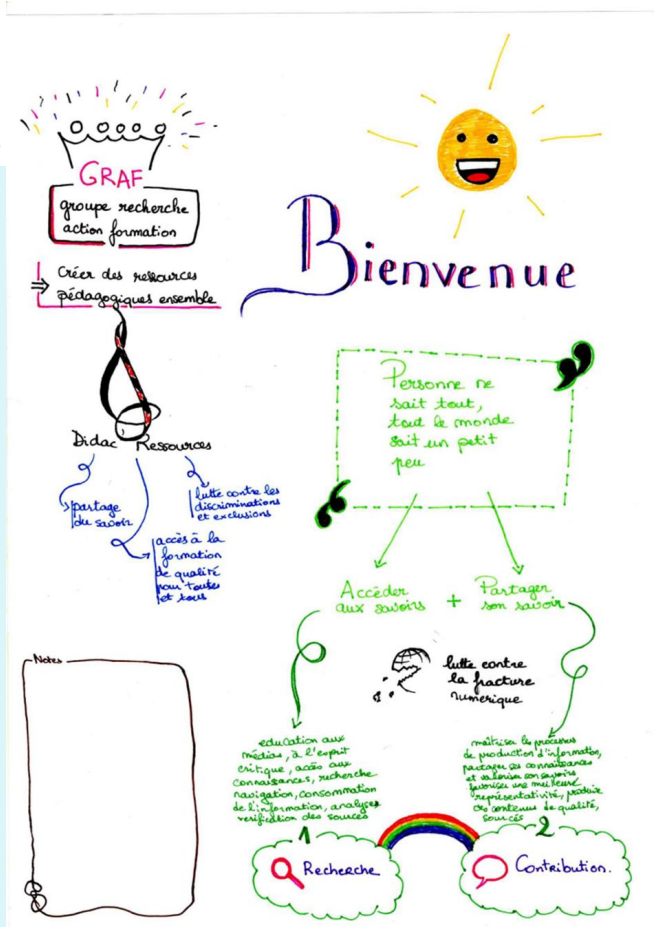 GRAF
groupe recherche
action formation
⇒ Créer des ressources
pédagogiques ensemble
Didac Ressources
partage
du savoir
accès à la
formation
de qualité
pour toutes
et tous
lutte contre les
discriminations
et exclusions
Notes
Bienvenue
Personne ne
sait tout,
tout le monde
sait un petit
peu
Accéder
aux savoirs
+
Partager
son savoir
lutte contre
la fracture
numerique
education aux
médias, à l'esprit
critique, accès aux
connaissances, recherche
navigation, consommation
de l'information, analyse,
verification des sources
1
Recherche
maîtriser les processus
de production d'information,
partager ses connaissances
et valoriser son savoirs
favoriser une meilleure
représentativité, produire
des contenus de qualité,
sourcés
2
Contribution.